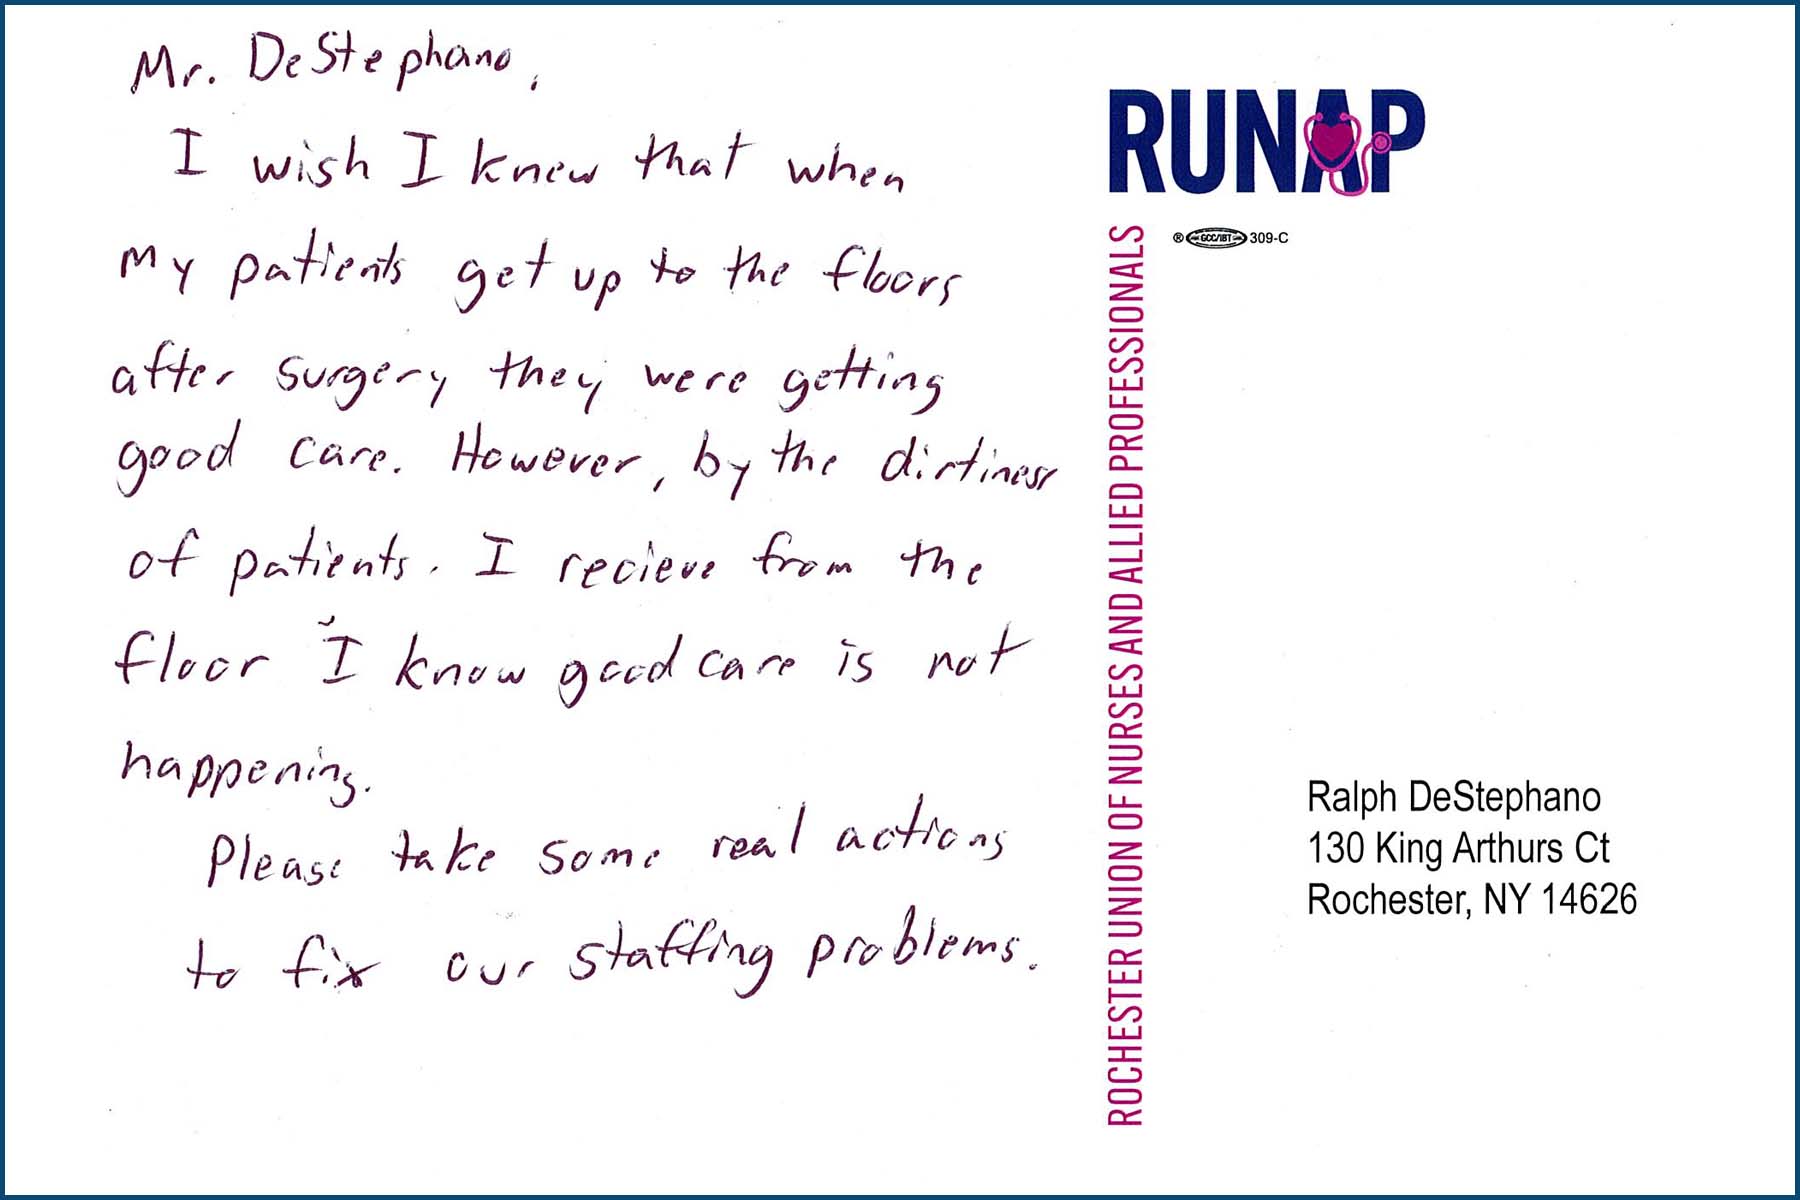 Mr. DeStephano,
I wish I knew that when
my patients get up to the floors
after surgery they were getting
good care. However, by the dirtiness
of patients. I recieve from the
floor I know good care is not
happening.
Please take some real actions
to fix our staffing problems.
RUNAP
® GCC/IBT 309-C
ROCHESTER UNION OF NURSES AND ALLIED PROFESSIONALS
Ralph DeStephano
130 King Arthurs Ct
Rochester, NY 14626